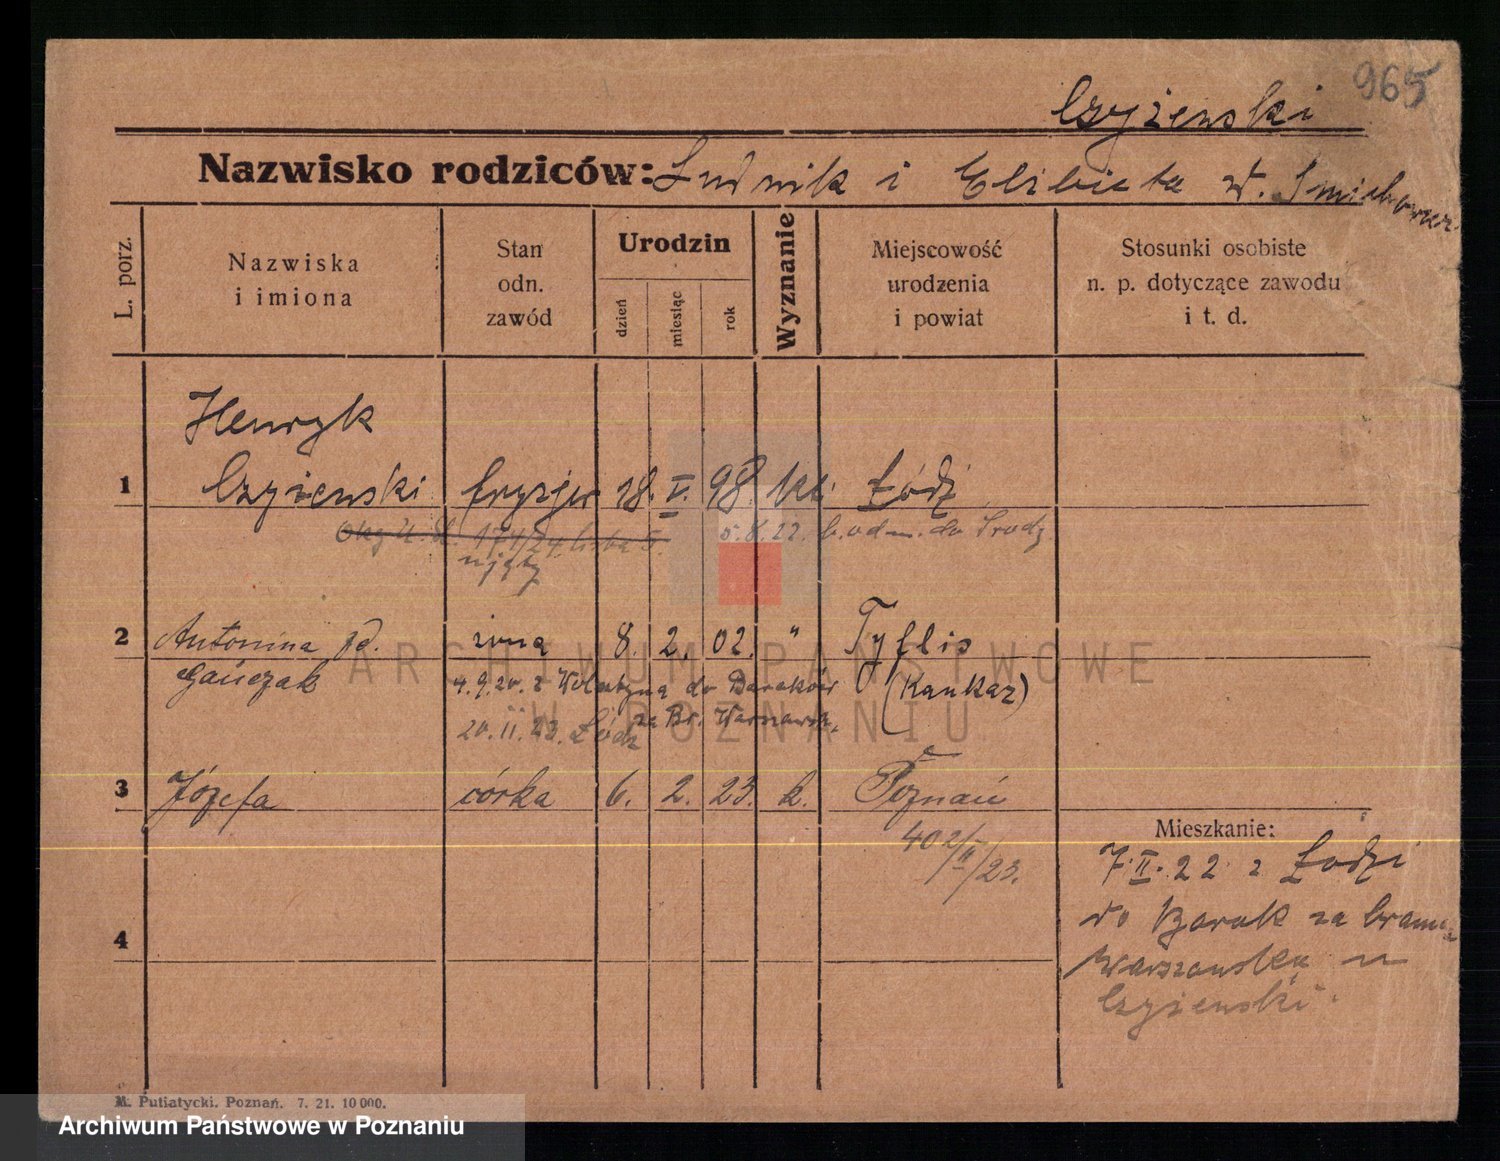 965
Czyżewski
Nazwisko rodziców: Ludwik i Elżbieta
L. porz.
Nazwiska
i imiona
Stan
odn.
zawód
Urodzin
dzień
miesiąc
rok
Wyznanie
Miejscowość
urodzenia
i powiat
Stosunki osobiste
n. p. dotyczące zawodu
i t. d.
Henryk
1 Czyżewski fryzjer 18. V. 98. kt. Łódź
5.8.22.
2 Antonina żona 8. 2. 02. " Tyflis
Gańczak (Kaukaz)
4.9.20. z do Baraków
za Br. Warszawsk.
20.II.23. Łódź
3 Józefa córka 6. 2. 23. k. Poznań
402/II/23.
Mieszkanie:
7.II.22 z Łodzi
do Barak za bramą
4
Warszawską u
Czyżewski.
M. Putiatycki. Poznań. 7. 21. 10 000.
ARCHIWUM PAŃSTWOWE
W POZNANIU
Archiwum Państwowe w Poznaniu